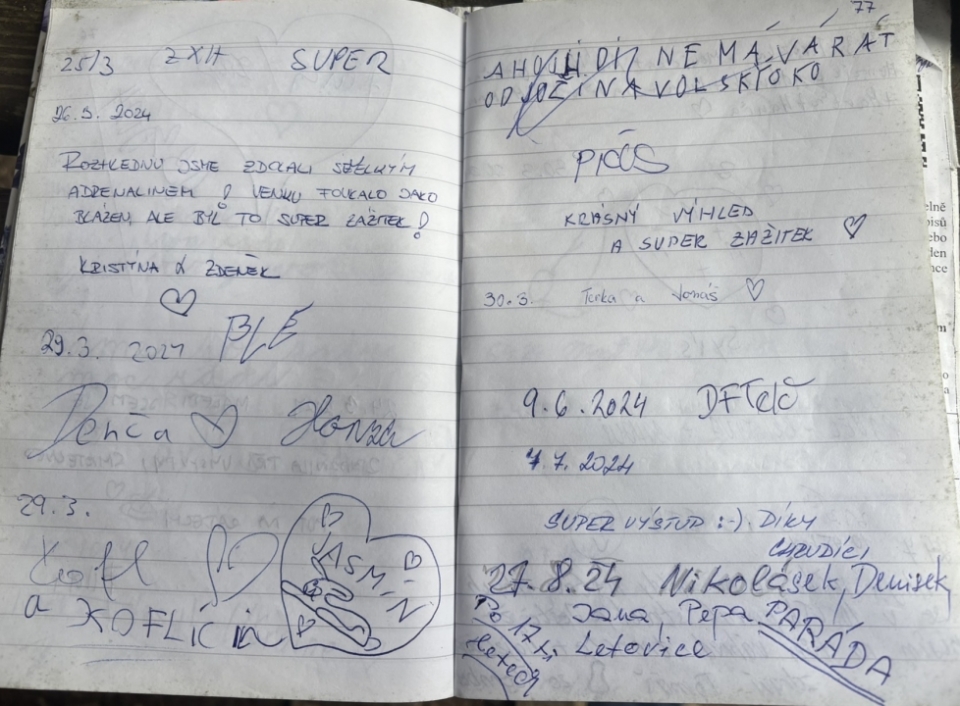 25/3 ZXH SUPER
26.3. 2024
ROZHLEDNU JSME ZDOLALI S VELKÝM
ADRENALINEM! VENKU FOUKALO JAKO
BLÁZEN, ALE BYL TO SUPER ZÁŽITEK!
KRISTÝNA & ZDENĚK
29.3. 2024 BLÉ
Denča Honza
29.3.
a KOFLÍČIN
JASMIN
77
NEMÁ VÁRAT
KRÁSNÝ VÝHLED
A SUPER ZAŽITEK
30.3. Terka a Jonáš
9.6.2024
7.7.2024
SUPER VÝSTUP :-). DÍKY
27.8.24 Nikolásek, Denisek,
Jana, Pepa PARÁDA
Po 17ti Letovice
letech